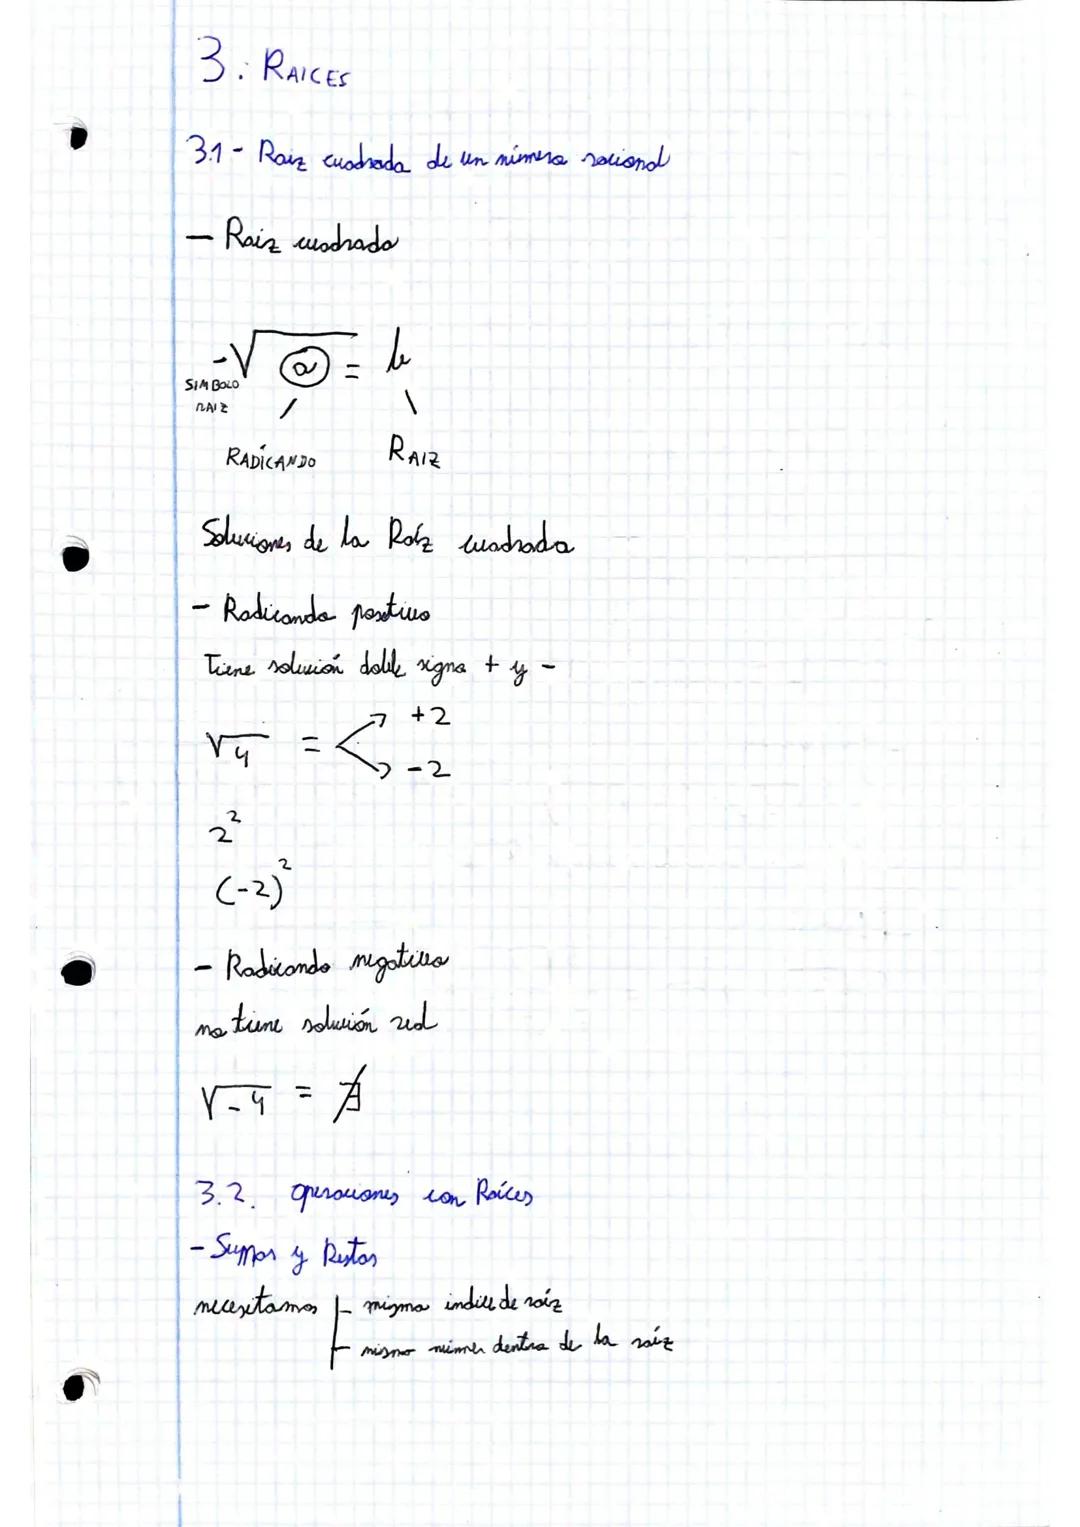 3. RAICES
3.1- Raiz cuadrada de un número racional
- Raiz cuadrada
√a = b
SIMBOLO
RAIZ
RADICANDO RAIZ
Soluciones de la Raíz cuadrada
- Radicando positivo
Tiene solución doble signo + y -
√4 = +2
-2
2²
(-2)²
- Radicando negativo
no tiene solución real
√-4 = ∄
3.2. operaciones con Raíces
- Sumas y Restas
necesitamos - mismo indice de raíz
- mismo númer dentro de la raíz